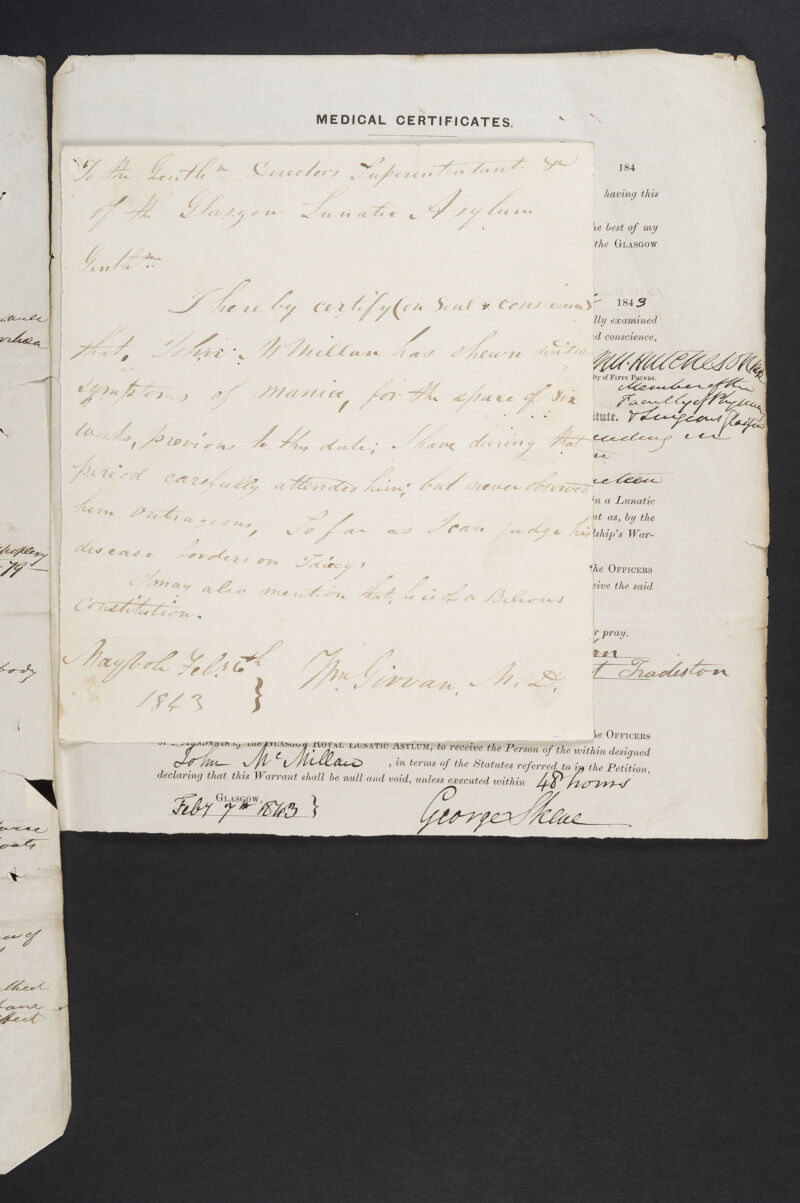 MEDICAL CERTIFICATES.
To the Gentlm Directors Superintentant &c
of the Glasgow Lunatic Asylum
Gentlm
I hereby certify (on Soul & conscience)
that, John McMillan has shewn decided
symptoms of mania, for the space of six
weeks, previous to this date; I have during that
period carefully attended him; but never observed
him outrageous, So far as I can judge his
disease borders on
I may also mention that he is of a Bilious
constitution.
Maybole Feby 6th
1843
Wm Girvan, M. D.
184
having this
he best of my
the GLASGOW
1843
lly examined
d conscience,
Wm Hutcheson
ty of FIFTY POUNDS.
Member of the
Faculty of Physicians
titute. & Surgeons Glasgow
n a Lunatic
at as, by the
dship's War-
the OFFICERS
ceive the said
r pray.
t Tradeston
he OFFICERS
GLASGOW ROYAL LUNATIC ASYLUM, to receive the Person of the within designed
John McMillan, in terms of the Statutes referred to in the Petition,
declaring that this Warrant shall be null and void, unless executed within 48 hours
GLASGOW,
Feby 7th 1843
George Skene
body
79